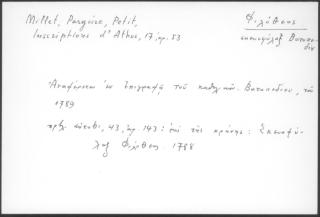 Millet, Pargoire, Petit,
Inscriptions d'Athos, 17, αρ. 53
Φιλόθεος
σκευοφύλαξ Βατοπεδίου
Ἀναφέρεται ἐν ἐπιγραφῇ τοῦ καθολικοῦ Βατοπεδίου, τοῦ
1789
πρβ. αὐτόθι, 43, ἀρ. 143: ἐπὶ τῆς κρήνης: Σκευοφύ-
λαξ Φιλόθεος 1788